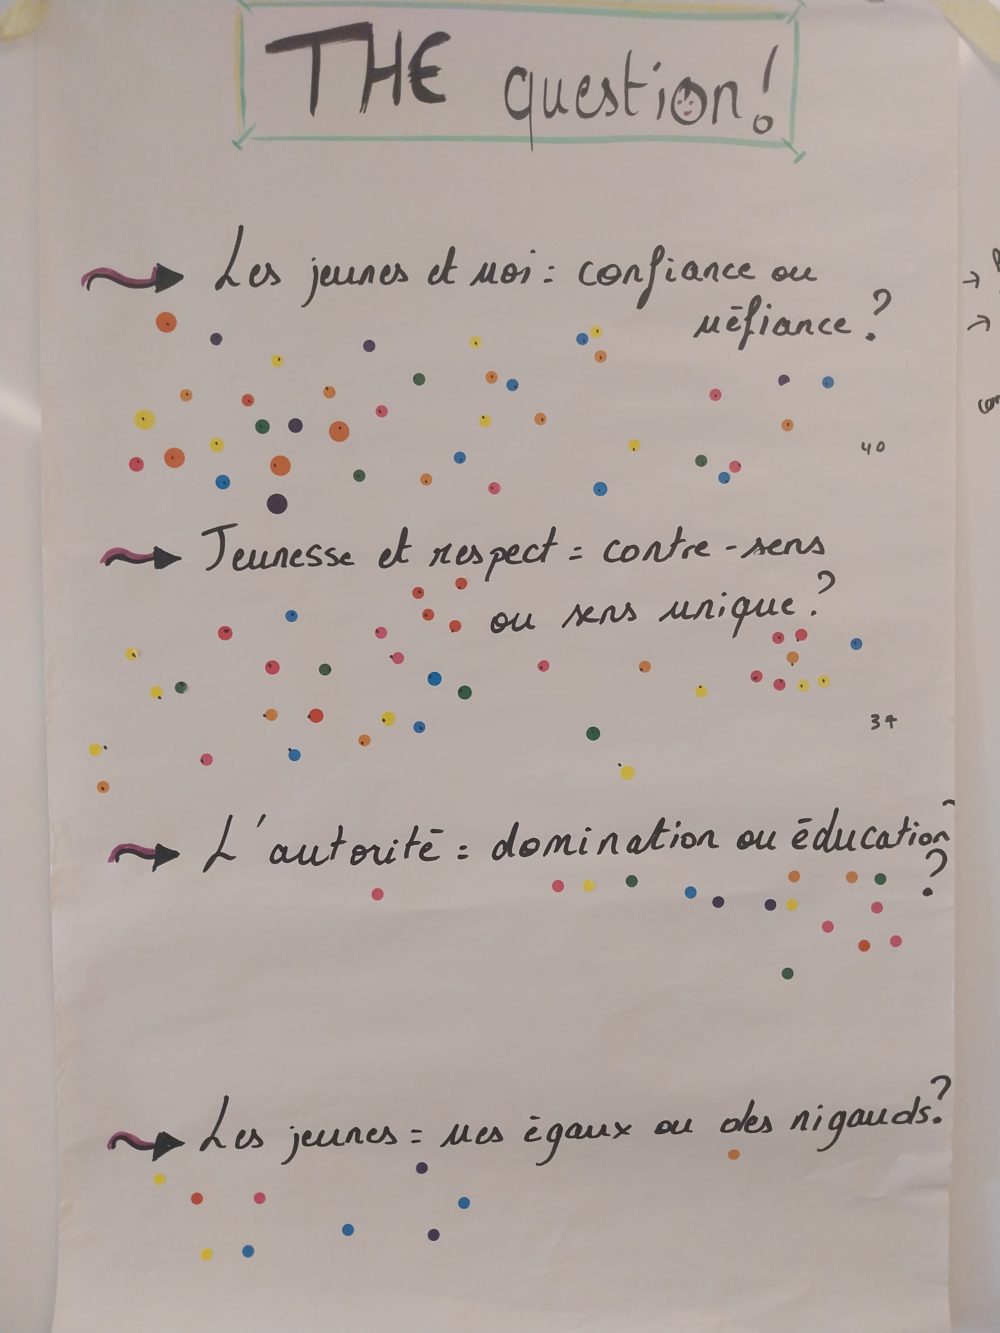 THE question!
Les jeunes et moi : confiance ou
méfiance ?
40
Jeunesse et respect = contre-sens
ou sens unique ?
34
L'autorité = domination ou éducation
?
Les jeunes = mes égaux ou des nigauds ?